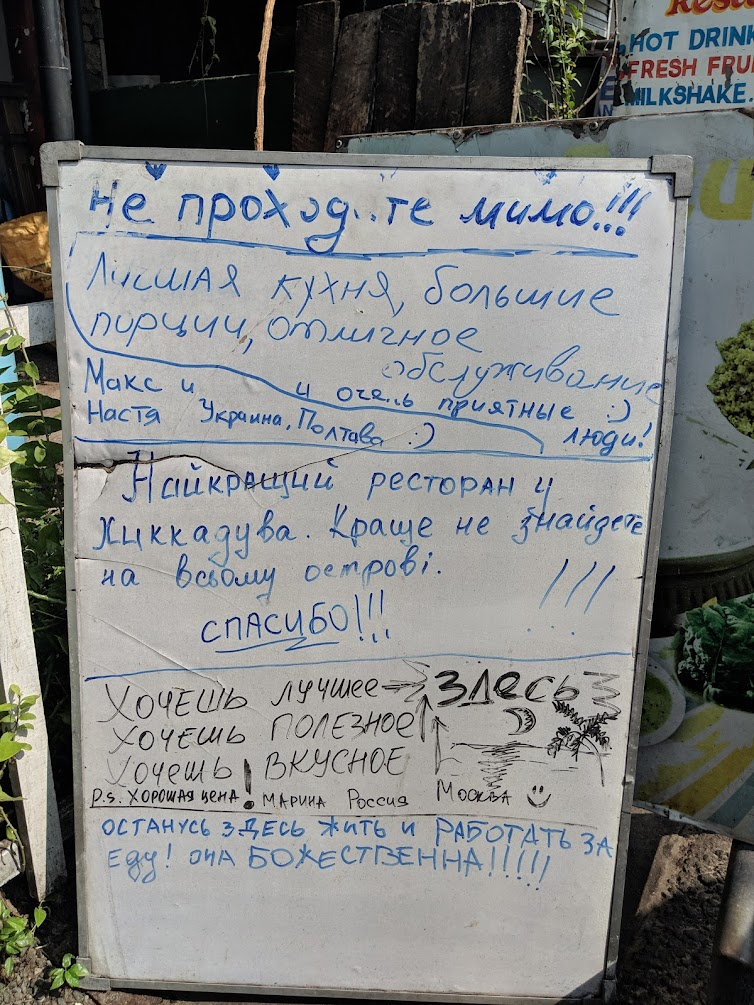 Resta
HOT DRINK
FRESH FRU
MILKSHAKE.
Не проход..те мимо!!!
Лучшая кухня, большие
порции, отличное
обслуживание
и очень приятные :)
люди!
Макс и
Настя Украина, Полтава :)
Найкращий ресторан у
Хиккадува. Краще не знайдете
на всьому острові. !!!
СПАСИБО!!!
ХОЧЕШЬ ЛУЧШЕЕ → ЗДЕСЬ
ХОЧЕШЬ ПОЛЕЗНОЕ
ХОЧЕШЬ ВКУСНОЕ
P.S. ХОРОШАЯ ЦЕНА! МАРИНА РОССИЯ МОСКВА
ОСТАНУСЬ ЗДЕСЬ ЖИТЬ И РАБОТАТЬ ЗА
ЕДУ! ОНА БОЖЕСТВЕННА!!!!!